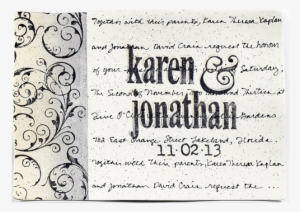 Together with their parents, Karen Theresa Kaplan
and Jonathan David Crain request the honour
of your
Saturday,
karen &
The Second November Two Thousand Thirteen at
jonathan
Gardens
East Orange Street Lakeland, Florida.
11·02·13
Together with Their parents, Karen Theresa Kaplan
and Jonathan David Crain request the ...